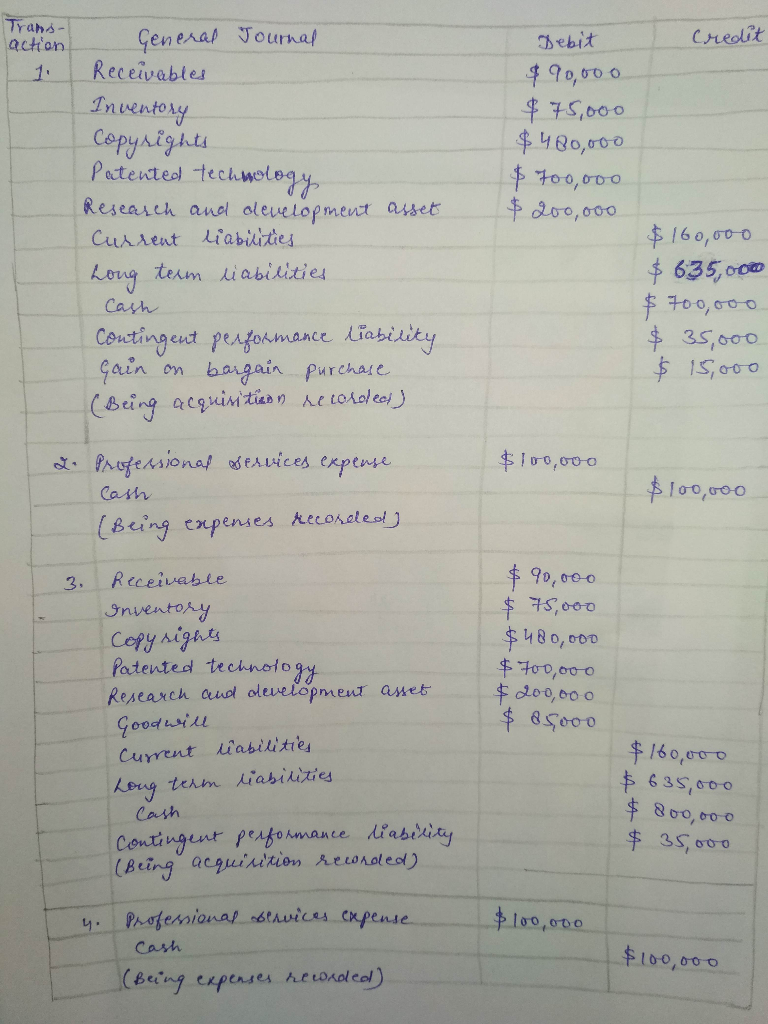 Trans-
action General Journal Debit Credit
1. Receivables $ 90,000
Inventory $ 75,000
Copyrights $ 480,000
Patented technology $ 700,000
Research and development asset $ 200,000
Current liabilities $ 160,000
Long term liabilities $ 635,000
Cash $ 700,000
Contingent performance liability $ 35,000
Gain on bargain purchase $ 15,000
(Being acquisition recorded)
2. Professional services expense $ 100,000
Cash $ 100,000
(Being expenses recorded)
3. Receivable $ 90,000
Inventory $ 75,000
Copyrights $ 480,000
Patented technology $ 700,000
Research and development asset $ 200,000
Goodwill $ 85,000
Current liabilities $ 160,000
Long term liabilities $ 635,000
Cash $ 800,000
Contingent performance liability $ 35,000
(Being acquisition recorded)
4. Professional services expense $ 100,000
Cash $ 100,000
(Being expenses recorded)